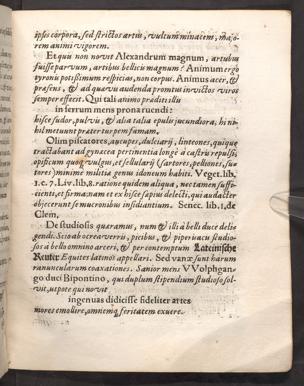 ipſos corpora, ſed ſtrictos artus, vultum minacem, majo-
rem animi vigorem.
Et quis non novit Alexandrum magnum, artubus
fuiſſe parvum, artibus bellicis magnum? Animum ergò
tyronis potiſsimum reſpicias, non corpus. Animus acer, &
præſens, & ad quævis audenda promtus invictos viros
ſemper effecit. Qui tali animo præditi illis
in ferrum mens prona ruendi:
hisce ſudor, pulvis, & alia talia epulis jucundiora, hi ni-
hil metuunt præter turpem famam.
Olim piſcatores, aucupes, dulciarij, linteones, quique
tractabant ad gynæcea pertinentia longè à caſtris repulſi,
opificum quoq; vulgus, et ſellularij (ſartores, pelliones, ſu-
tores) minime militiæ genus idoneum habiti. Veget. lib.
1. c. 7. Liv. lib. 8. ratione quidem aliqua, nec tamen ſuffi-
cienti, et firma: nam et ex hisce ſæpius delecti, qui audacter
objecerunt ſe mucronibus inſidiantium. Senec. lib. 1. de
Clem.
De ſtudioſis quæramus, num & illi à belli duce delie
gendi. Scio ab ocrea verris, pictisbo, & piperivacu ſtudio-
ſos à bello omnino arceri, & per contemptum Lateiniſche
Reuter Equites latinos appellari. Sed vanæ ſunt harum
ranuncularum coaxationes. Sanior mens VVolphgan-
go duci Bipontino, qui duplum ſtipendium ſtudioſo ſol-
vit, utpote qui novit
ingenuas didiciſſe fideliter artes
mores emollire, omnemq; feritatem exuere.